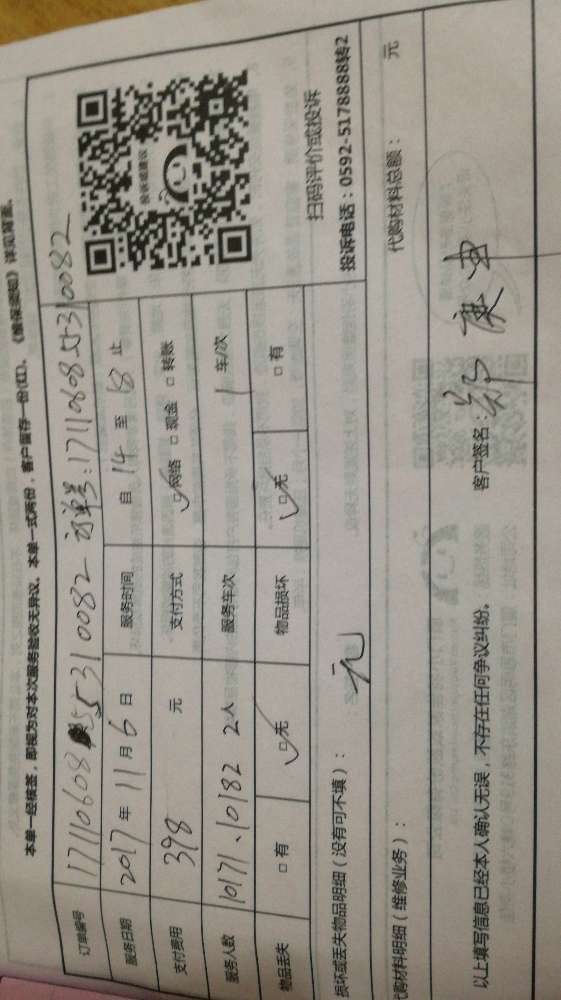 本单一经核签，即视为对本次服务验收无异议。本单一式两份，客户留存一份(红)。《维保须知》详见背面。
订单编号 17110608 55310082 订单号:1711060855310082
服务日期 2017年11月6日 服务时间 自14至18止
支付费用 398 元 支付方式 ☑网络 □现金 □转账
服务人数 10171、10182 2人 服务车次 1 车/次
物品丢失 □有 ☑无 物品损坏 ☑无 □有
投诉或建议
扫码评价或投诉
投诉电话：0592-5178888转2
损坏或丢失物品明细（没有可不填）： 元
购材料明细（维修业务）： 代购材料总额： 元
以上填写信息已经本人确认无误，不存在任何争议纠纷。 客户签名：郑